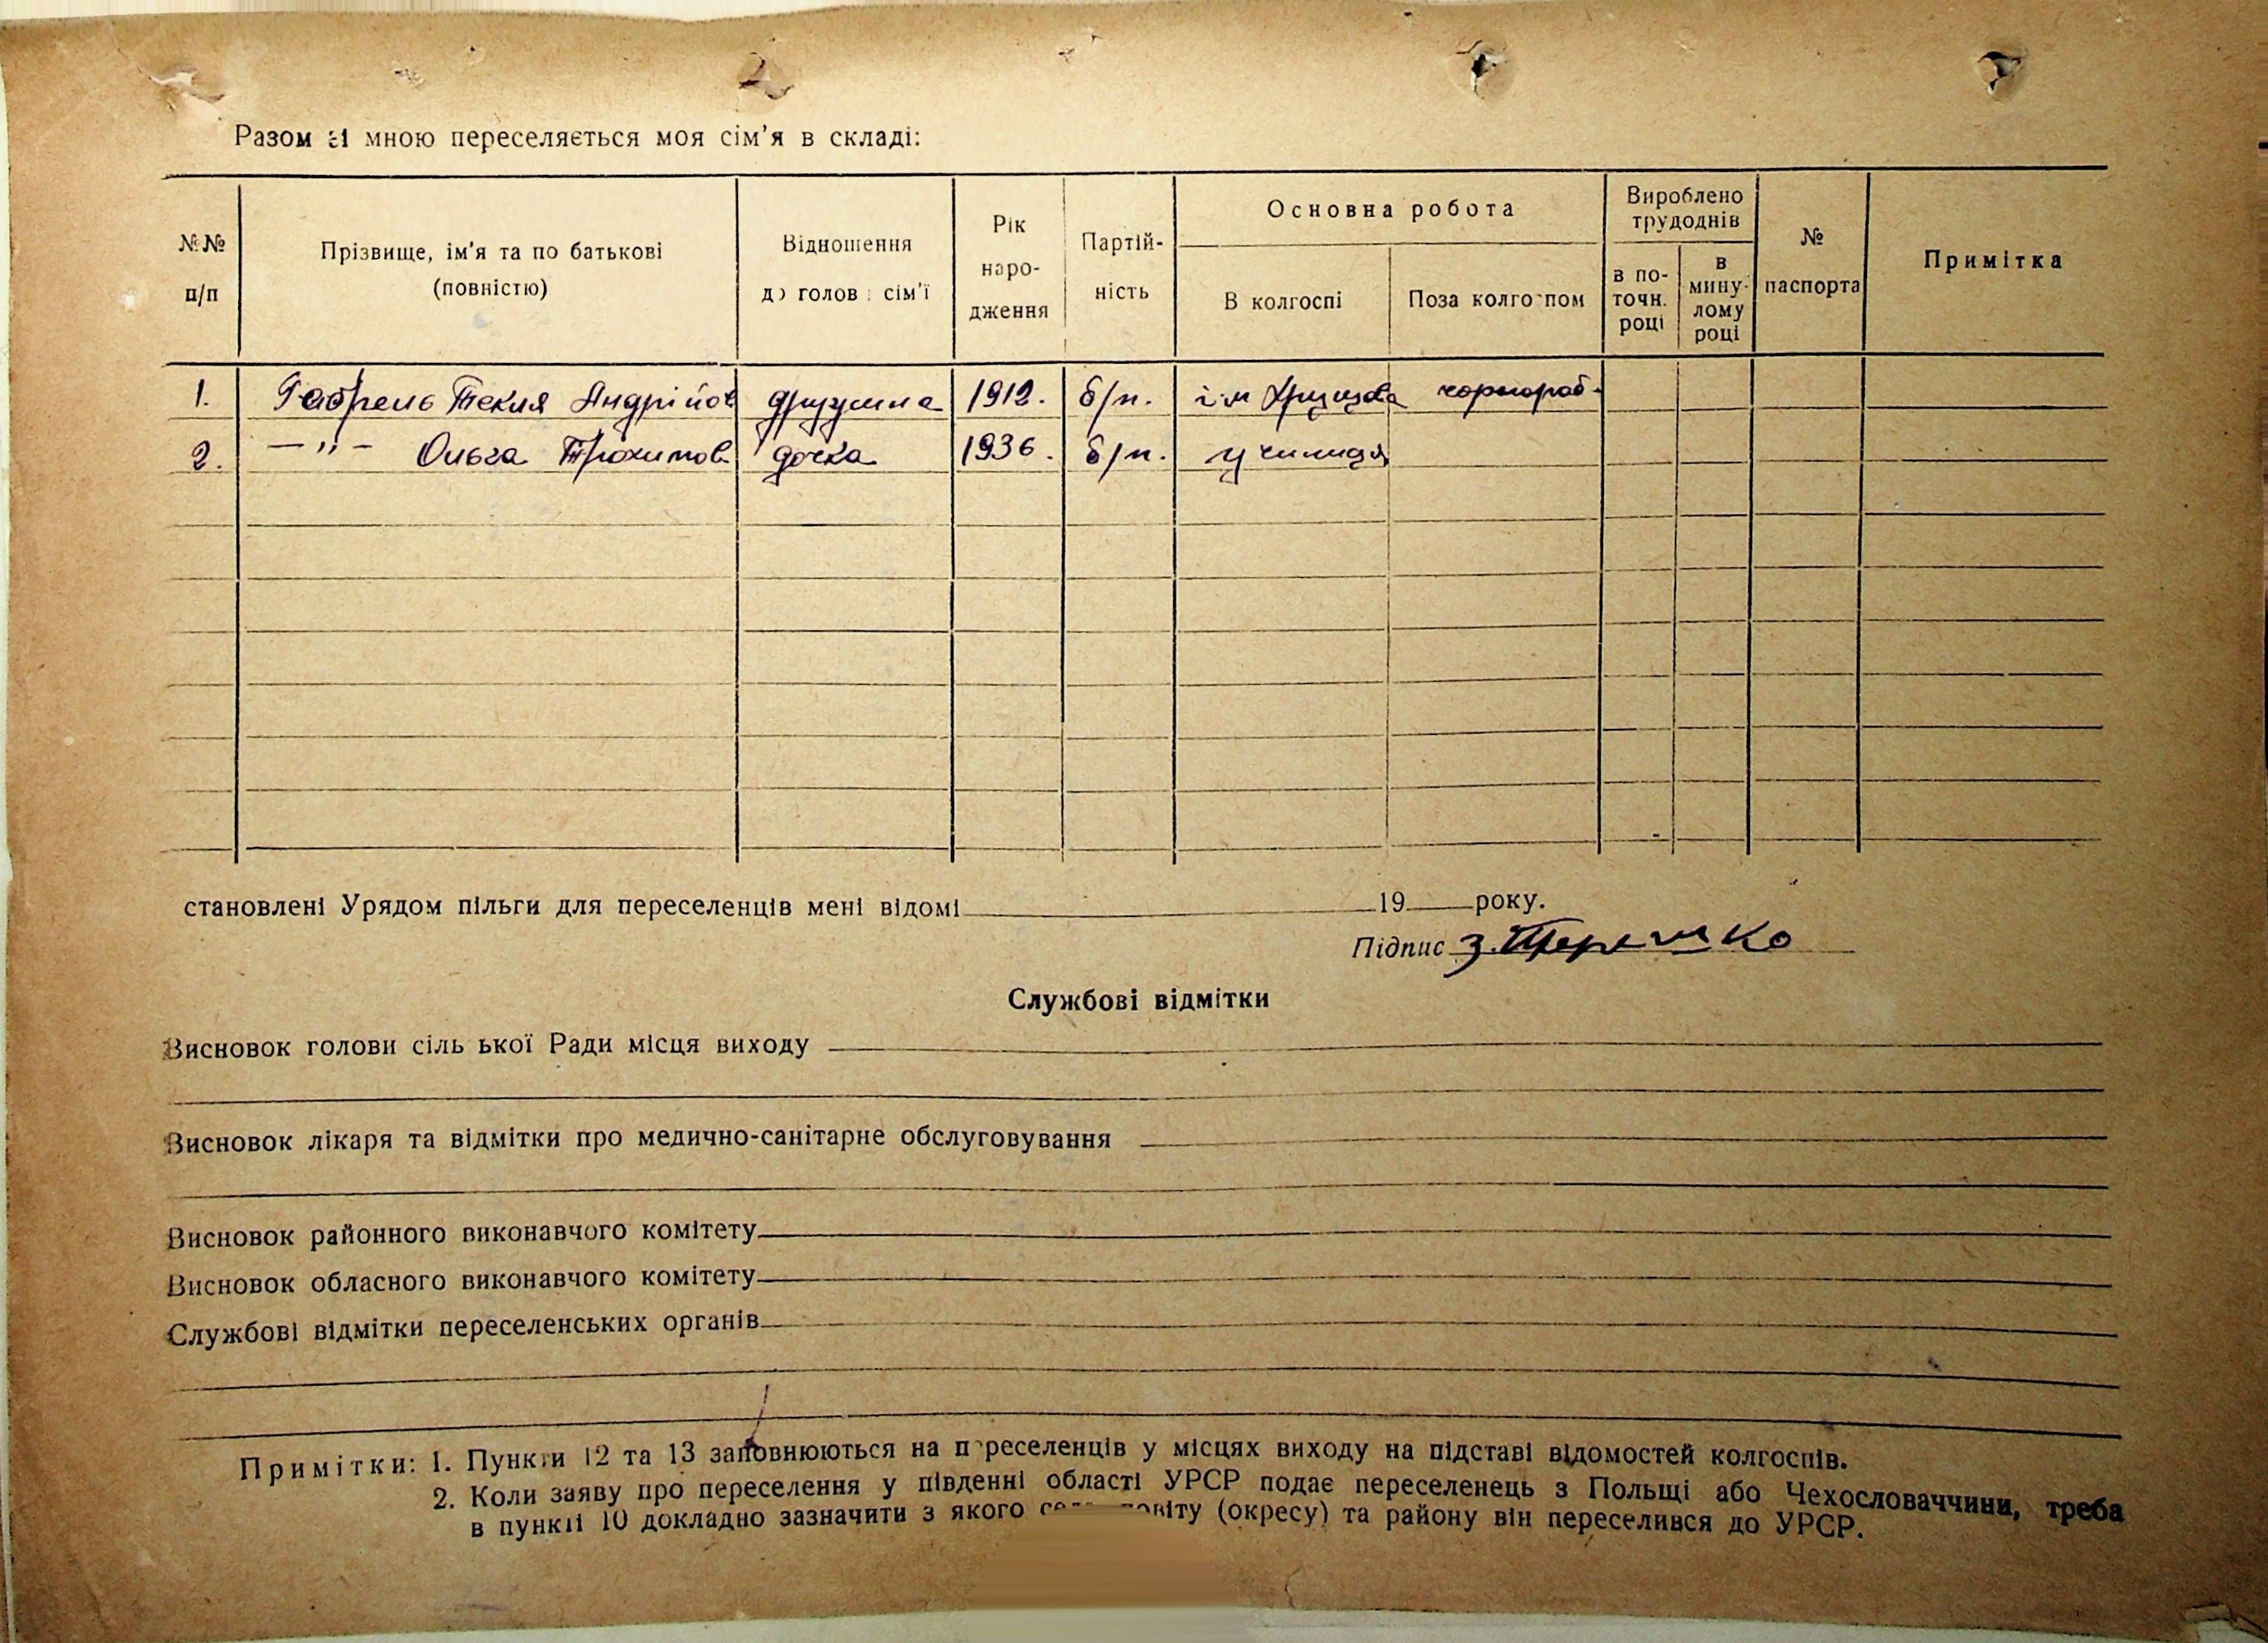 Разом зі мною переселяється моя сім'я в складі:
№№ п/п
Прізвище, ім'я та по батькові (повністю)
Відношення до голови сім'ї
Рік наро- дження
Партій- ність
Основна робота
В колгоспі
Поза колгоспом
Вироблено трудоднів
в по- точн. році
в мину- лому році
№ паспорта
Примітка
1. Габрель Текля Андрійов дружина 1912. б/п. ім Хрущова чорнороб.
2. —"— Ольга Трохимов. дочка 1936. б/п. училище
становлені Урядом пільги для переселенців мені відомі 19 року.
Підпис
Службові відмітки
Висновок голови сіль ької Ради місця виходу
Висновок лікаря та відмітки про медично-санітарне обслуговування
Висновок районного виконавчого комітету
Висновок обласного виконавчого комітету
Службові відмітки переселенських органів
Примітки: 1. Пункти 12 та 13 заповнюються на переселенців у місцях виходу на підставі відомостей колгоспів.
2. Коли заяву про переселення у південні області УРСР подає переселенець з Польщі або Чехословаччини, треба
в пункті 10 докладно зазначити з якого (окресу) та району він переселився до УРСР.